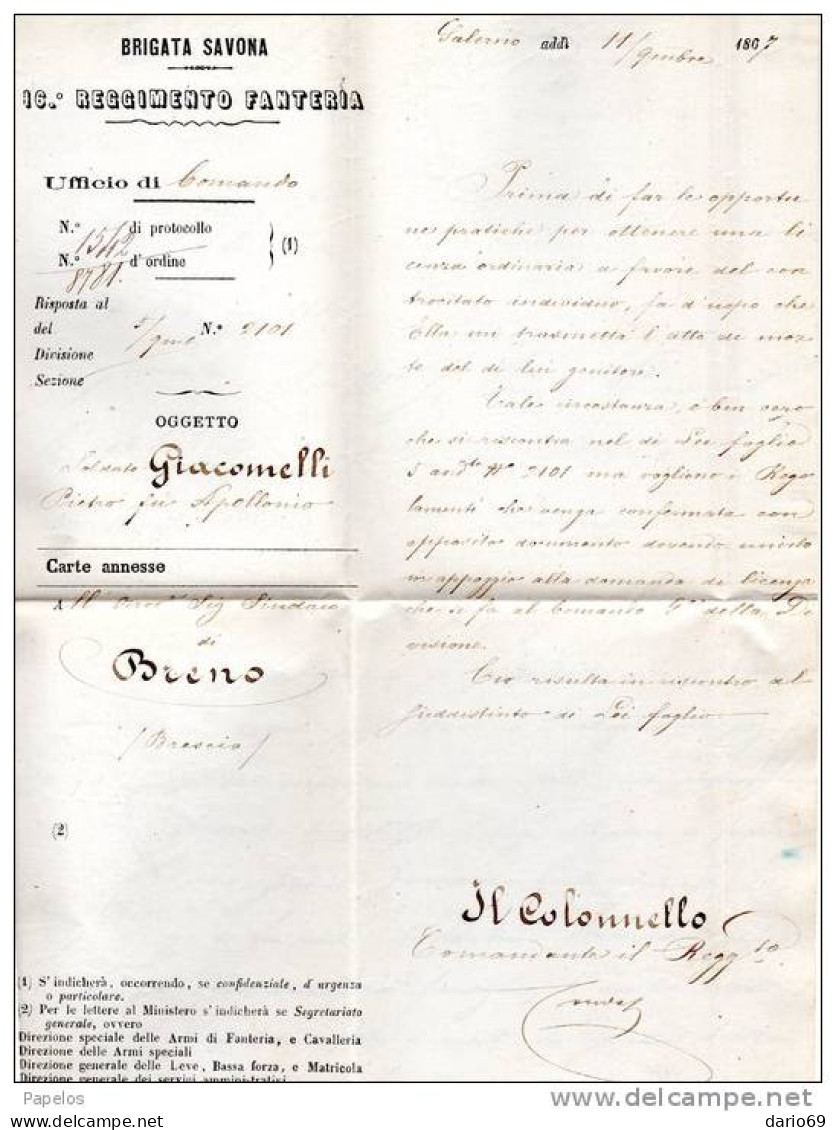 BRIGATA SAVONA
16.° REGGIMENTO FANTERIA
Ufficio di Comando
N.° 1512 di protocollo
N.° 8781. d'ordine
(1)
Risposta al
del 5/9mbe N.° 2101
Divisione
Sezione
OGGETTO
Soldato Giacomelli
Pietro fu Apollonio
Carte annesse
A Ill Sig Sindaco
di
Breno
(Brescia)
(2)
(1) S'indicherà, occorrendo, se confidenziale, d'urgenza
o particolare.
(2) Per le lettere al Ministero s'indicherà se Segretariato
generale, ovvero
Direzione speciale delle Armi di Fanteria, e Cavalleria
Direzione delle Armi speciali
Direzione generale delle Leve, Bassa forza, e Matricola
Direzione generale dei servizi amministrativi
addì 11/9mbre 1867
Prima di far le opportu
ne pratiche per ottenere una li
cenza ordinaria a favore del con
trocitato individuo, fa d'uopo che
Ella mi trasmetta l'atto di mor
te del di lui genitore.
Tale circostanza, è ben vero
che si riscontra nel di Lei foglio
5 and.te N° 2101 ma vogliono i Rego
lamenti che venga confermata con
apposito documento dovendo unirlo
in appoggio alla domanda di licenza
che si fa al Comando G.le della Di
visione.
Ciò risulta in riscontro al
suddistinto di Lei foglio
Il Colonnello
Comandante il Regg.to
Papelos
delcampe.net
dario69